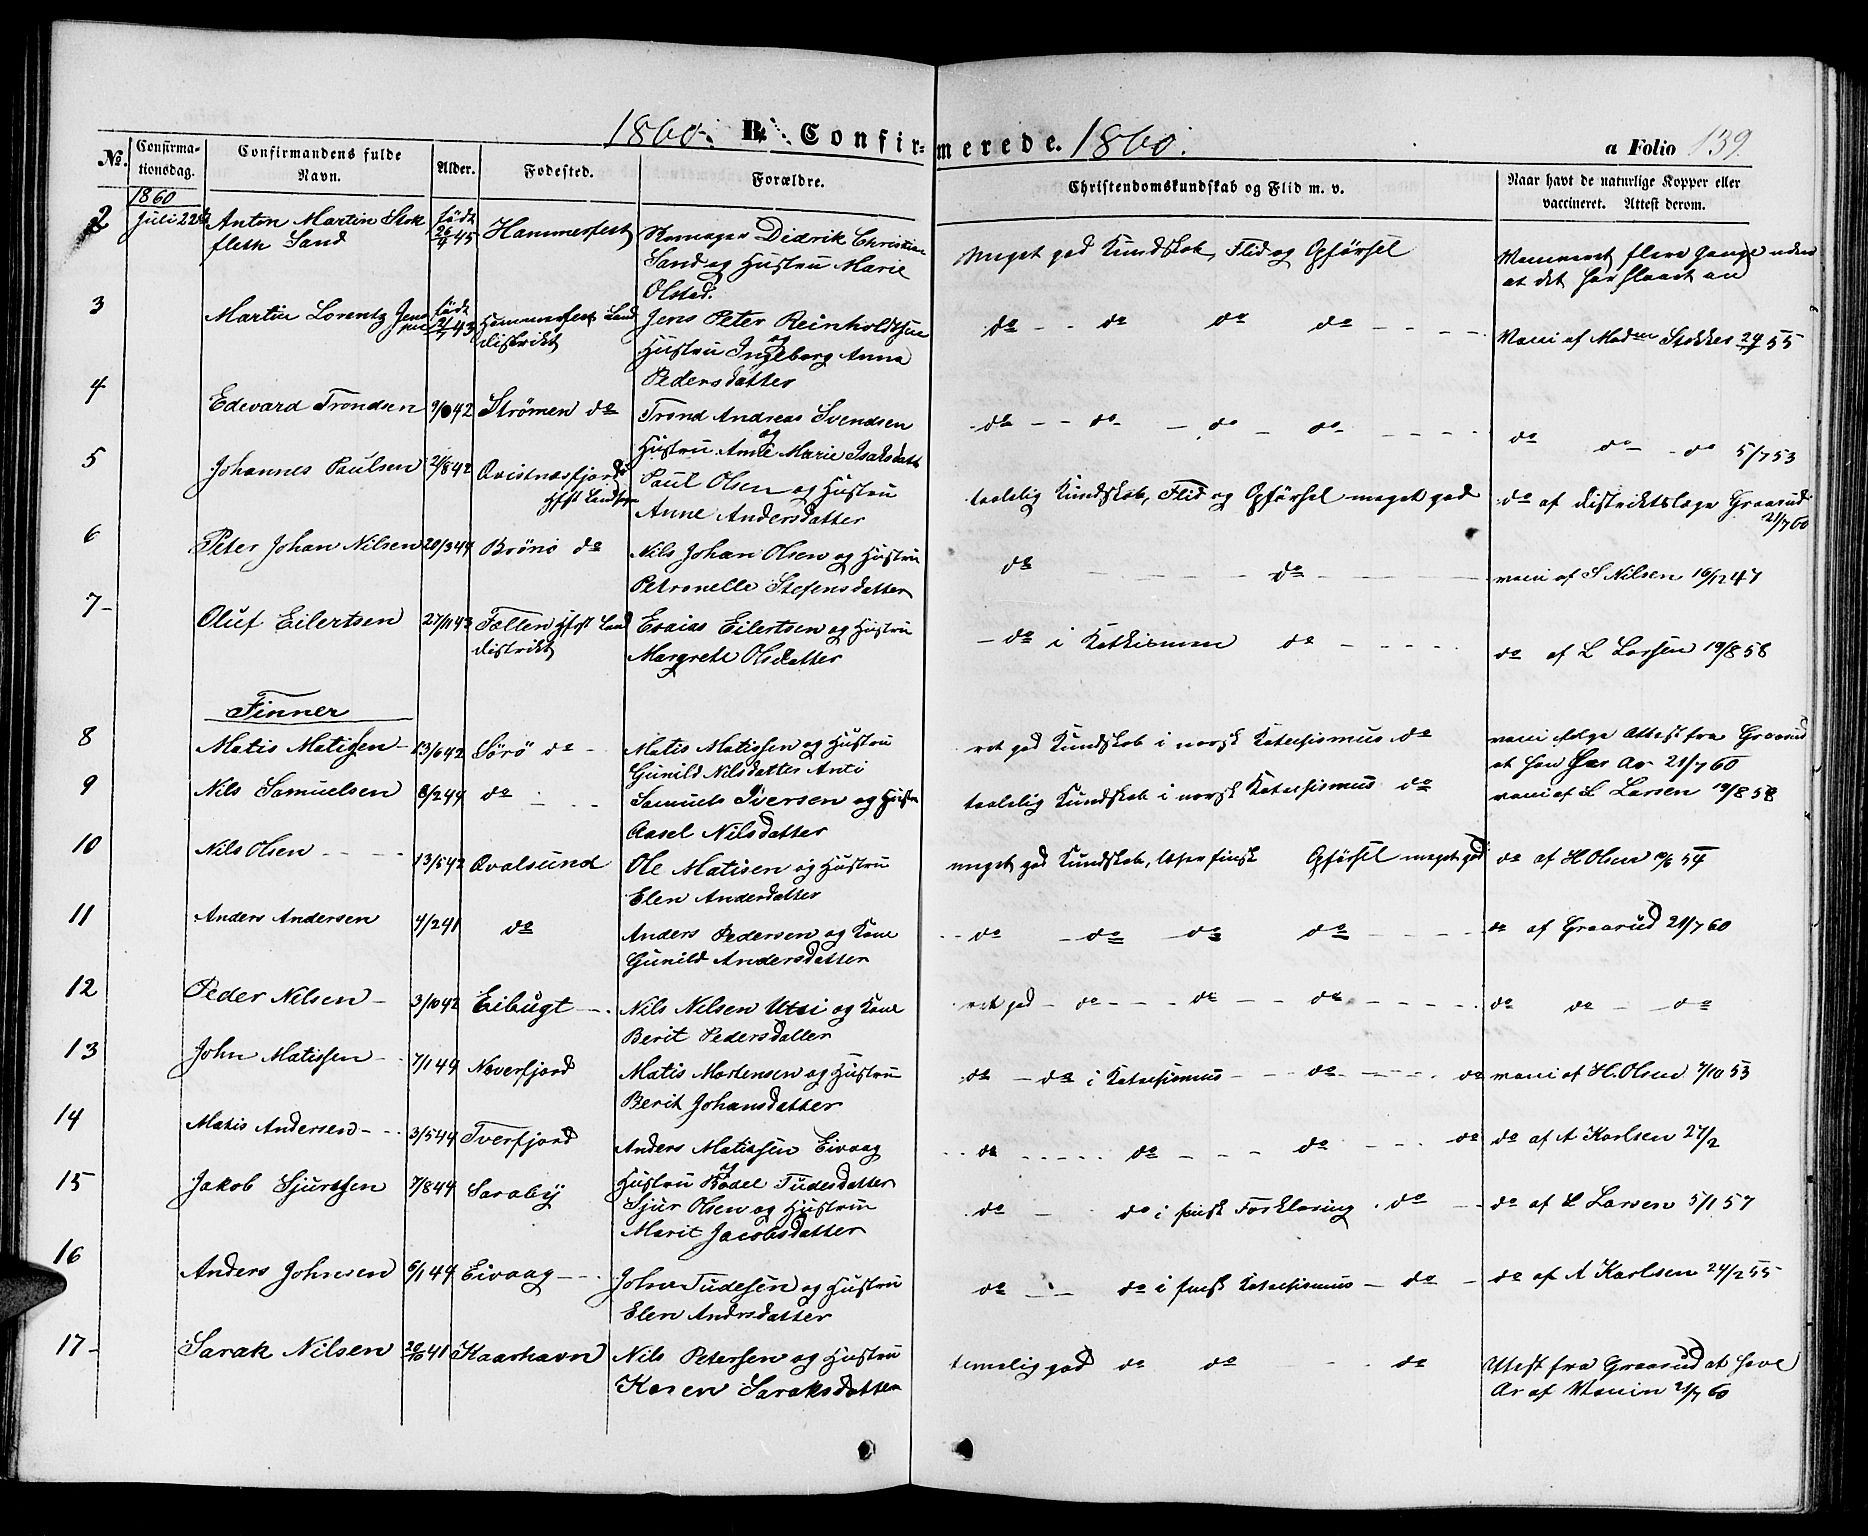 1860. B. Confirmerede. 1860.
a Folio 139.
No. Confirmationsdag. Confirmandens fulde Navn. Alder. Fødested. Forældre. Christendomskundskab og Flid m. v. Naar havt de naturlige Kopper eller vaccineret. Attest derom.
1860
2 Juli 22de Anton Martin Stok født 26/4 45 Hammerfest Didrik Christian Meget god Kundskab, Flid og Opførsel Vaccineret flere Gange uden
fleth Sand Sand og Hustru Marie at det har slaaet an
Olsted.
3 Martin Lorentz Jens født 43 Hammerfest Land Jens Peter Reinholdtsen do - - do do do - - - - Vacci af Madm Stokkes 29/7 55
sen distrikt og
Hustru Ingeborg Anna
Pedersdatter
4 Edevard Trondsen 42 Strømen do Trond Andreas Svendsen do - - do - do - do - - - - do do - do 5/7 53
og
Hustru Anne Marie Isaksdatt
5 Johannes Paulsen 21/8 42 Qvistnæsfjord Paul Olsen og Hustru taalelig Kundskab, Flid og Opførsel meget god do af Distriktslæge Graarud
Hfst Landsn Anne Andersdatter 21/7 60
6 Peter Johan Nilsen 20/3 44 Brönö do Nils Johan Olsen og Hustru do - - - do - - - vacci af S Nilsen 16/12 47
Petronelle Stefensdatter
7 - Oluf Eilertsen 27/11 43 Fællen Hfst Land Esaias Eilertsen og Hustru - do i Katkismen do - - - - do af L Larsen 19/8 58
distrikt Margrete Olsdatter
Finner
8 Matis Matissen - 13/6 42 Sörö do - Matis Matissen og Hustru ret god Kundskab i norsk Katechismus do vacci følge Attest fra Graarud
Gunild Nilsdatter Anti at han har Ar 21/7 60
9 Nils Samuelsen 8/2 44 do - - - Samuel Iversen og Hustru taalelig Kundskab i norsk Katechismus do vacci af L Larsen 19/8 58
Aasel Nilsdatter
10 Nils Olsen - - - - 13/5 42 Qvalsund Ole Matisen og Hustru meget god Kundskab, læser finsk Opførsel meget god do af H Olsen 10/6 54
Elen Andersdatter
11 Anders Andersen 4/2 41 do Anders Pedersen og Kone - - do - do - do do - - - - do af Graarud 21/7 60
Gunild Andersdatter
12 Peder Nilsen - 3/10 42 Eibugt - . Nils Nilsen Utsi og Kone ret god - do - - do - - do - - - - do do - - do
Berit Pedersdatter
13 John Matissen - - 7/1 44 Neverfjord Matis Mortensen og Hustru do - do i Katechismus - - do - - - - do vacci af H. Olsen 7/10 53
Berit Johansdatter
14 Matis Andersen - - 3/5 44 Tverfjord Anders Matissen Eivaag - - do - - - - - do - - - do - - - do do af A Karlsen 27/2
og
Hustru Bodel Tudesdatter
15 Jakob Sjurssen 7/8 44 Saraby Sjur Olsen og Hustru do - do i finsk Forklaring do - - do af L Larsen 5/1 57
Marit Jacobsdatter
16 Anders Johnsen 6/1 44 Eivaag - - - John Tudesen og Hustru do - - do i finsk Katechismus - do - do af A Karlsen 24/2 55
Elen Andrsdatter
17 - Sarak Nilsen 20/10 41 Kaarhavn Nils Petersen og Hustru temelig god do do - do Attest fra Graarud at have
Karen Saraksdatter Ar af Vaccin 21/7 60